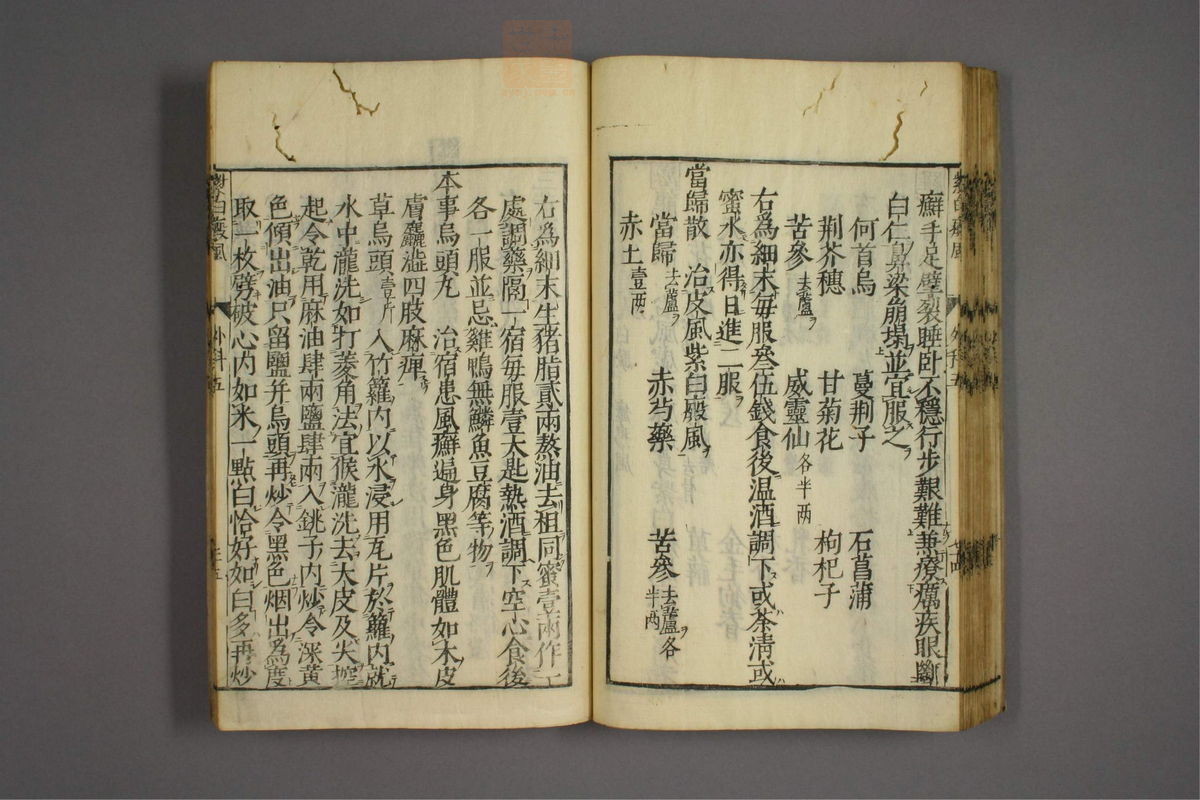 癬手足皸裂睡卧不穩行步艱難兼療癘疾眼斷
白仁鼻梁崩塌並宜服之
何首烏 蔓荆子 石菖蒲
荆芥穗 甘菊花 枸杞子
苦參去蘆 威靈仙各半兩
右爲細末每服叄伍錢食後温酒調下或茶淸或
蜜水亦得日進二服
當歸散 治皮風紫白癜風
當歸去蘆 赤芍藥 苦參去蘆各半兩
赤土壹兩
外科五
右爲細末生猪脂貳兩熬油去柤同蜜壹兩作一
處調藥閣一宿每服壹大匙熱酒調下空心食後
各一服並忌雞鴨無鱗魚豆腐等物
本事烏頭丸 治宿患風癬遍身黑色肌體如木皮
膚麤澁四肢麻痺
草烏頭壹斤 入竹籮内以水浸用瓦片於籮内就
水中瀧洗如打菱角法宜候瀧洗去大皮及尖控
起令乾用麻油肆兩鹽肆兩入銚子内炒令深黄
色傾出油只留鹽并烏頭再炒令黑色烟出爲度
取一枚劈破心内如米一點白恰好如白多再炒
紫白癜風 外科五